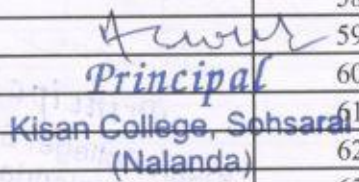 59
Principal
60
Kisan College, Sohsarai
61
(Nalanda)
62